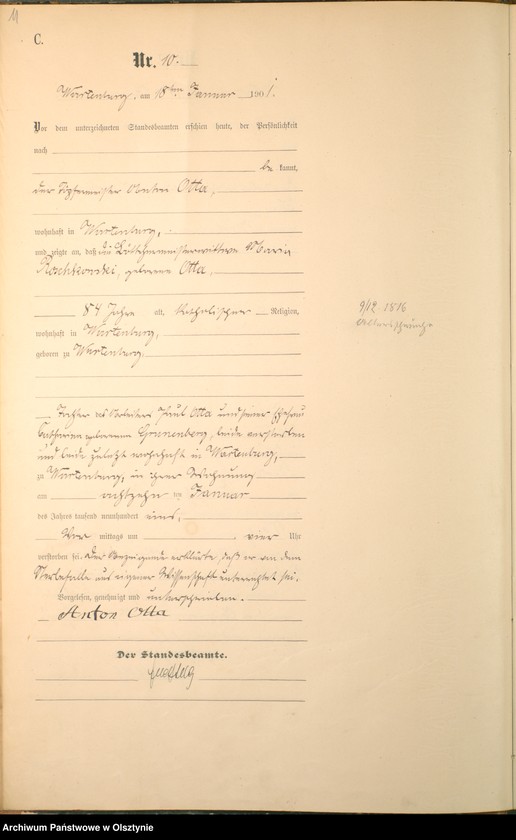 11
C.
Nr. 10.
Wartenburg, am 18ten Januar 1901.
Vor dem unterzeichneten Standesbeamten erschien heute, der Persönlichkeit
nach
be kannt,
der Töpfermeister Anton Otta,
wohnhaft in Wartenburg,
und zeigte an, daß die Böttchermeisterwittwe Maria
geborene Otta,
84 Jahre alt, katholischer Religion,
wohnhaft in Wartenburg,
geboren zu Wartenburg,
Tochter des Arbeiters Paul Otta und seiner Ehefrau
Catharina geborenen Grunenberg, beide verstorben
und beide zuletzt wohnhaft in Wartenburg,
zu Wartenburg, in ihrer Wohnung
am achtzehn ten Januar
des Jahres tausend neunhundert eins,
Vor mittags um vier Uhr
verstorben sei. Der Anzeigende erklärte, daß er von dem
Sterbefalle aus eigener Wissenschaft unterrichtet sei.
Vorgelesen, genehmigt und unterschrieben.
Anton Otta
Der Standesbeamte.
9/12 1816
Altersschwäche
Archiwum Państwowe w Olsztynie